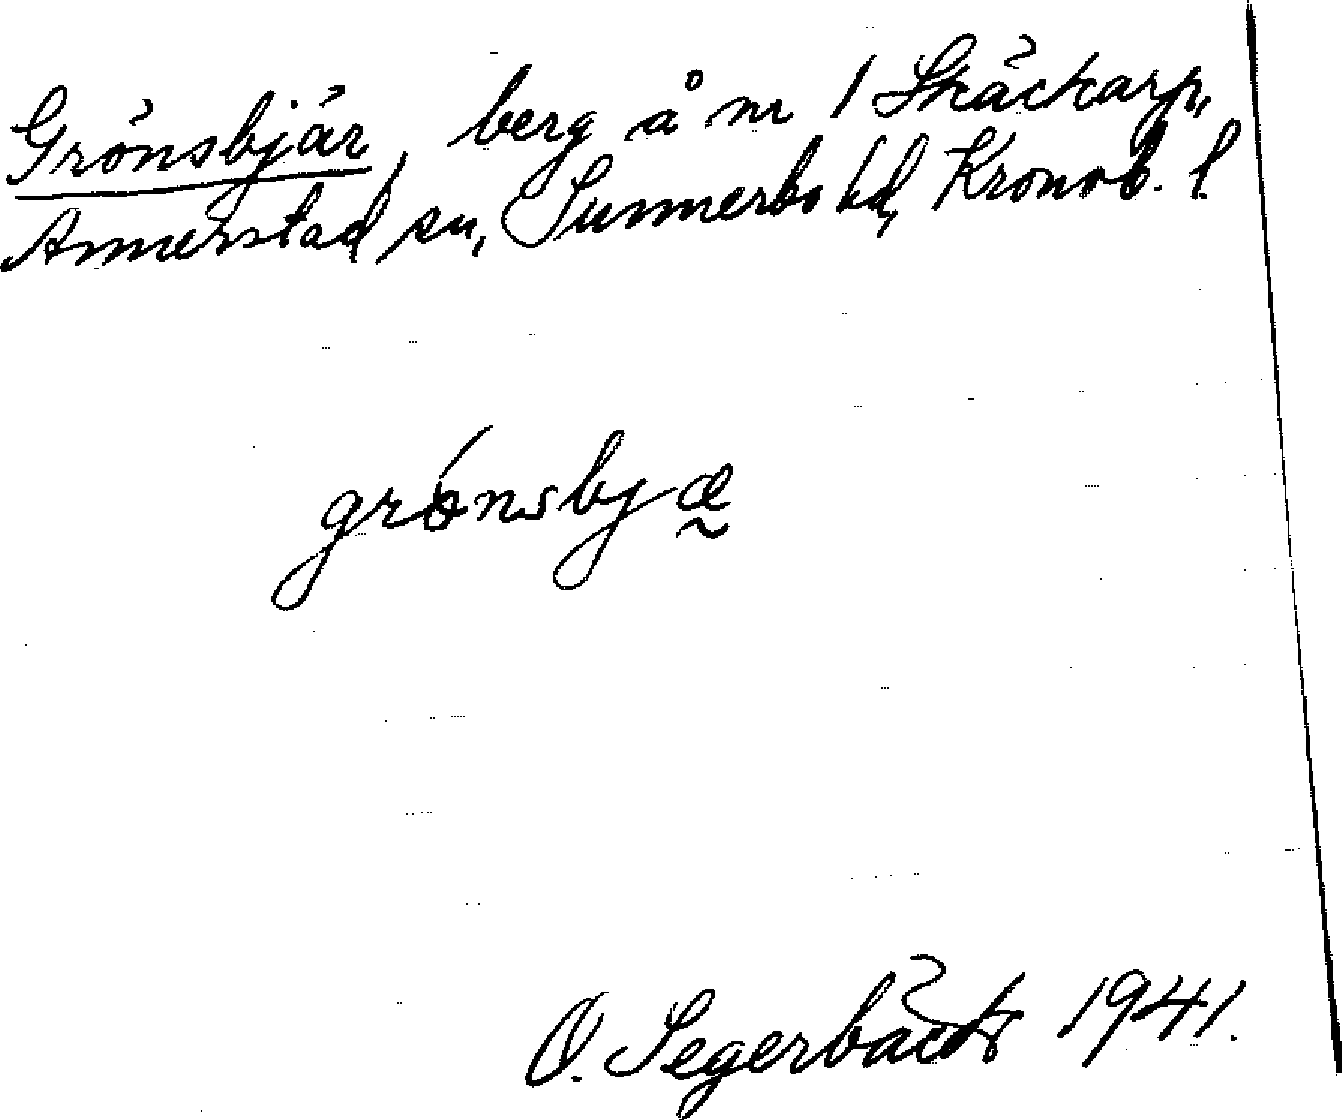 Grönsbjär, berg å nr 1 Skäckarp,
Annerstad sn, Sunnerbo hd, Kronob. l.
grónsbjæ̰
O. Segerbäck 1941.